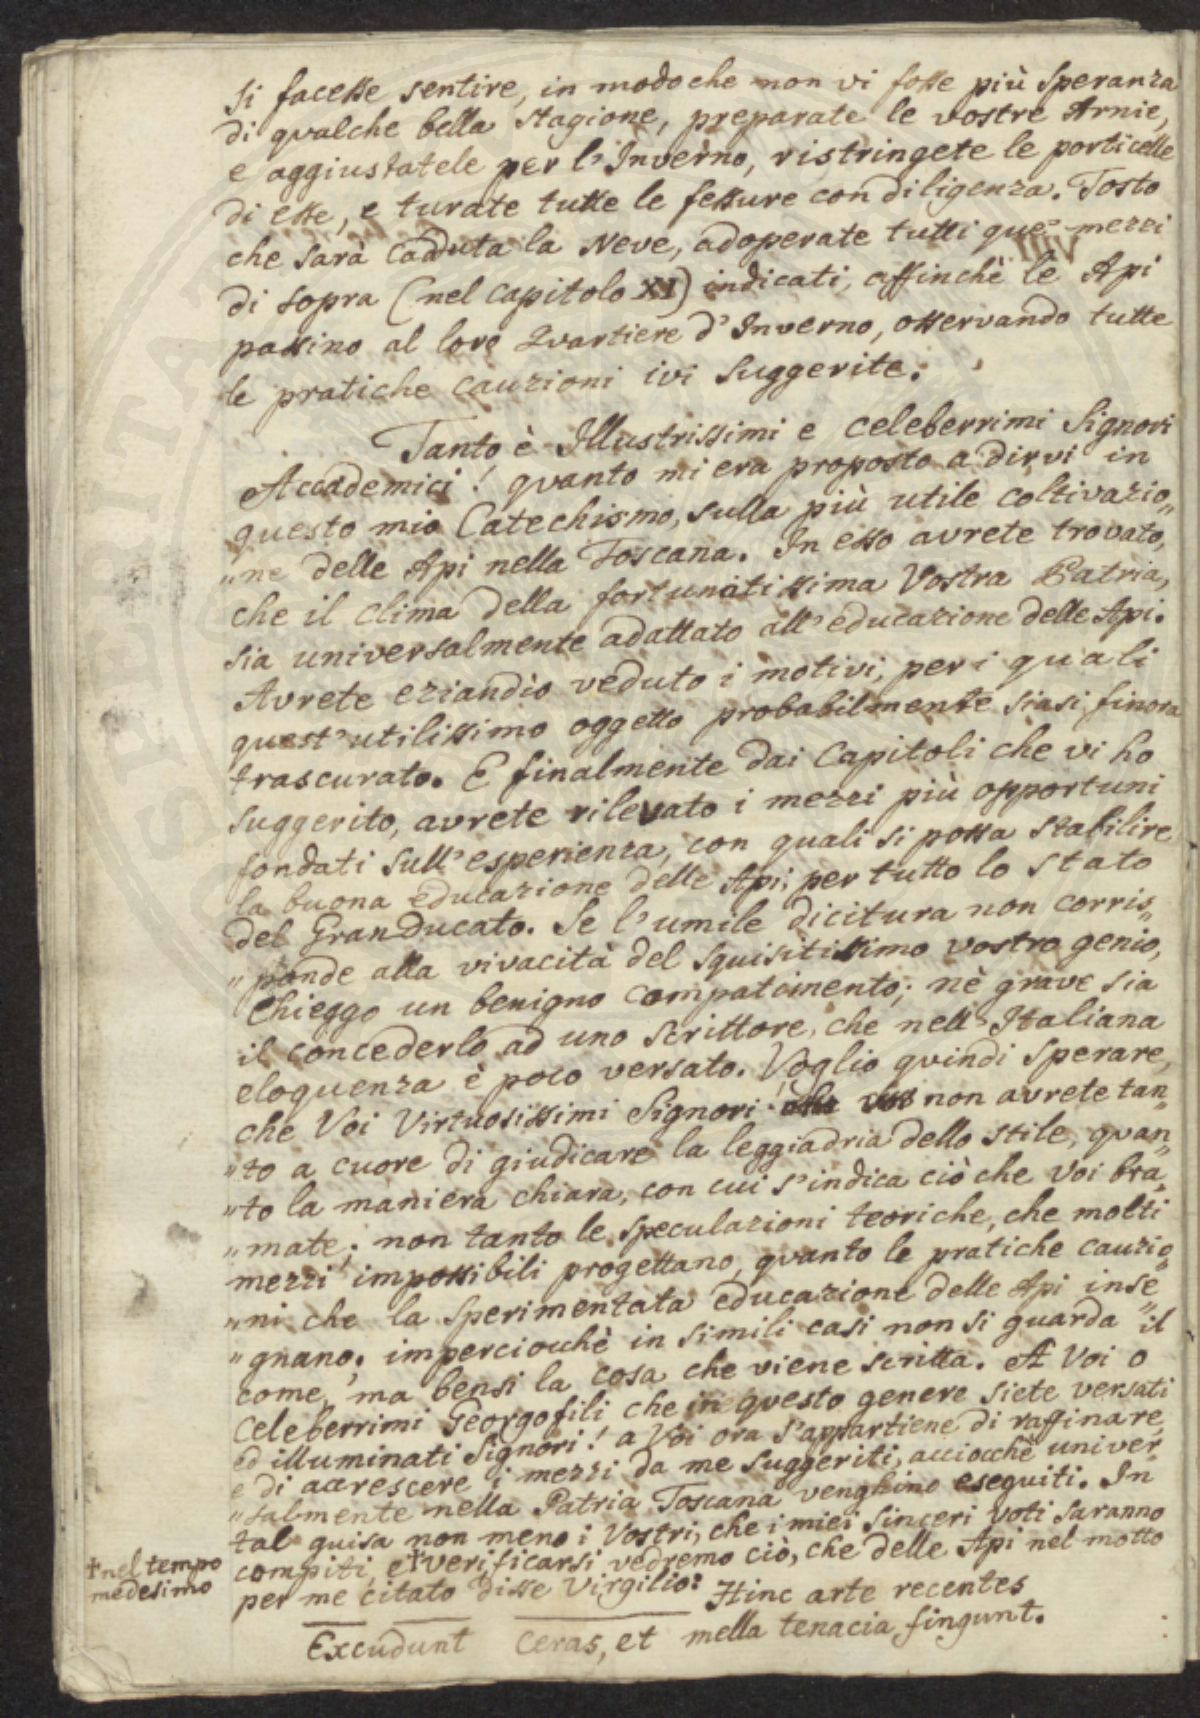 si facesse sentire, in modo che non vi fosse più speranza
di qualche bella stagione, preparate le vostre Arnie,
e aggiustatele per l'Inverno, ristringete le porticelle
di esse, e turate tutte le fessure con diligenza. Tosto
che sarà caduta la Neve, adoperate tutti que' mezzi
di sopra (nel capitolo XI) indicati, affinchè le Api
passino al loro Quartiere d'Inverno, osservando tutte
le pratiche cauzioni ivi suggerite.
Tanto è Illustrissimi e celeberrimi Signori
Accademici! quanto mi era proposto a dirvi in
questo mio Catechismo, sulla più utile coltivazio„
„ne delle Api nella Toscana. In esso avrete trovato,
che il clima della fortunatissima Vostra Patria,
sia universalmente adattato all'educazione delle Api.
Avrete eziandìo veduto i motivi, per i quali
quest'utilissimo oggetto probabilmente siasi finora
trascurato. E finalmente dai Capitoli che vi ho
suggerito, avrete rilevato i mezzi più opportuni
fondati sull'esperienza, con quali si possa stabilire
la buona educazione delle Api, per tutto lo stato
del GranDucato. Se l'umile dicitura non corris„
„ponde alla vivacità del squisitissimo vostro genio,
Chieggo un benigno compatimento; nè grave sia
il concederlo ad uno scrittore, che nell'Italiana
eloquenza è poco versato. Voglio quindi sperare,
che Voi Virtuosissimi Signori! non avrete tan„
„to a cuore di giudicare la leggiadria dello stile, quan„
„to la maniera chiara, con cui s'indica ciò che Voi bra„
„mate; non tanto le speculazioni teoriche, che molti
mezzi impossibili progettano, quanto le pratiche cauzio„
„ni che la sperimentata educazione delle Api inse„
„gnano; imperciocchè in simili casi non si guarda il
come, ma bensi la cosa che viene scritta. A Voi o
Celeberrimi Georgofili che in questo genere siete versati
ed illuminati Signori! a Voi ora s'appartiene di raffinare,
e di accrescere i mezzi da me suggeriti, acciocchè univer„
„salmente nella Patria Toscana venghino eseguiti. In
tal guisa non meno i Vostri, che i miei sinceri voti saranno
compiti, e + verificarsi vedremo ciò, che delle Api nel motto
+ nel tempo
medesimo
per me citato disse Virgilio: Hinc arte recentes
Excudunt ceras, et mella tenacia fingunt.